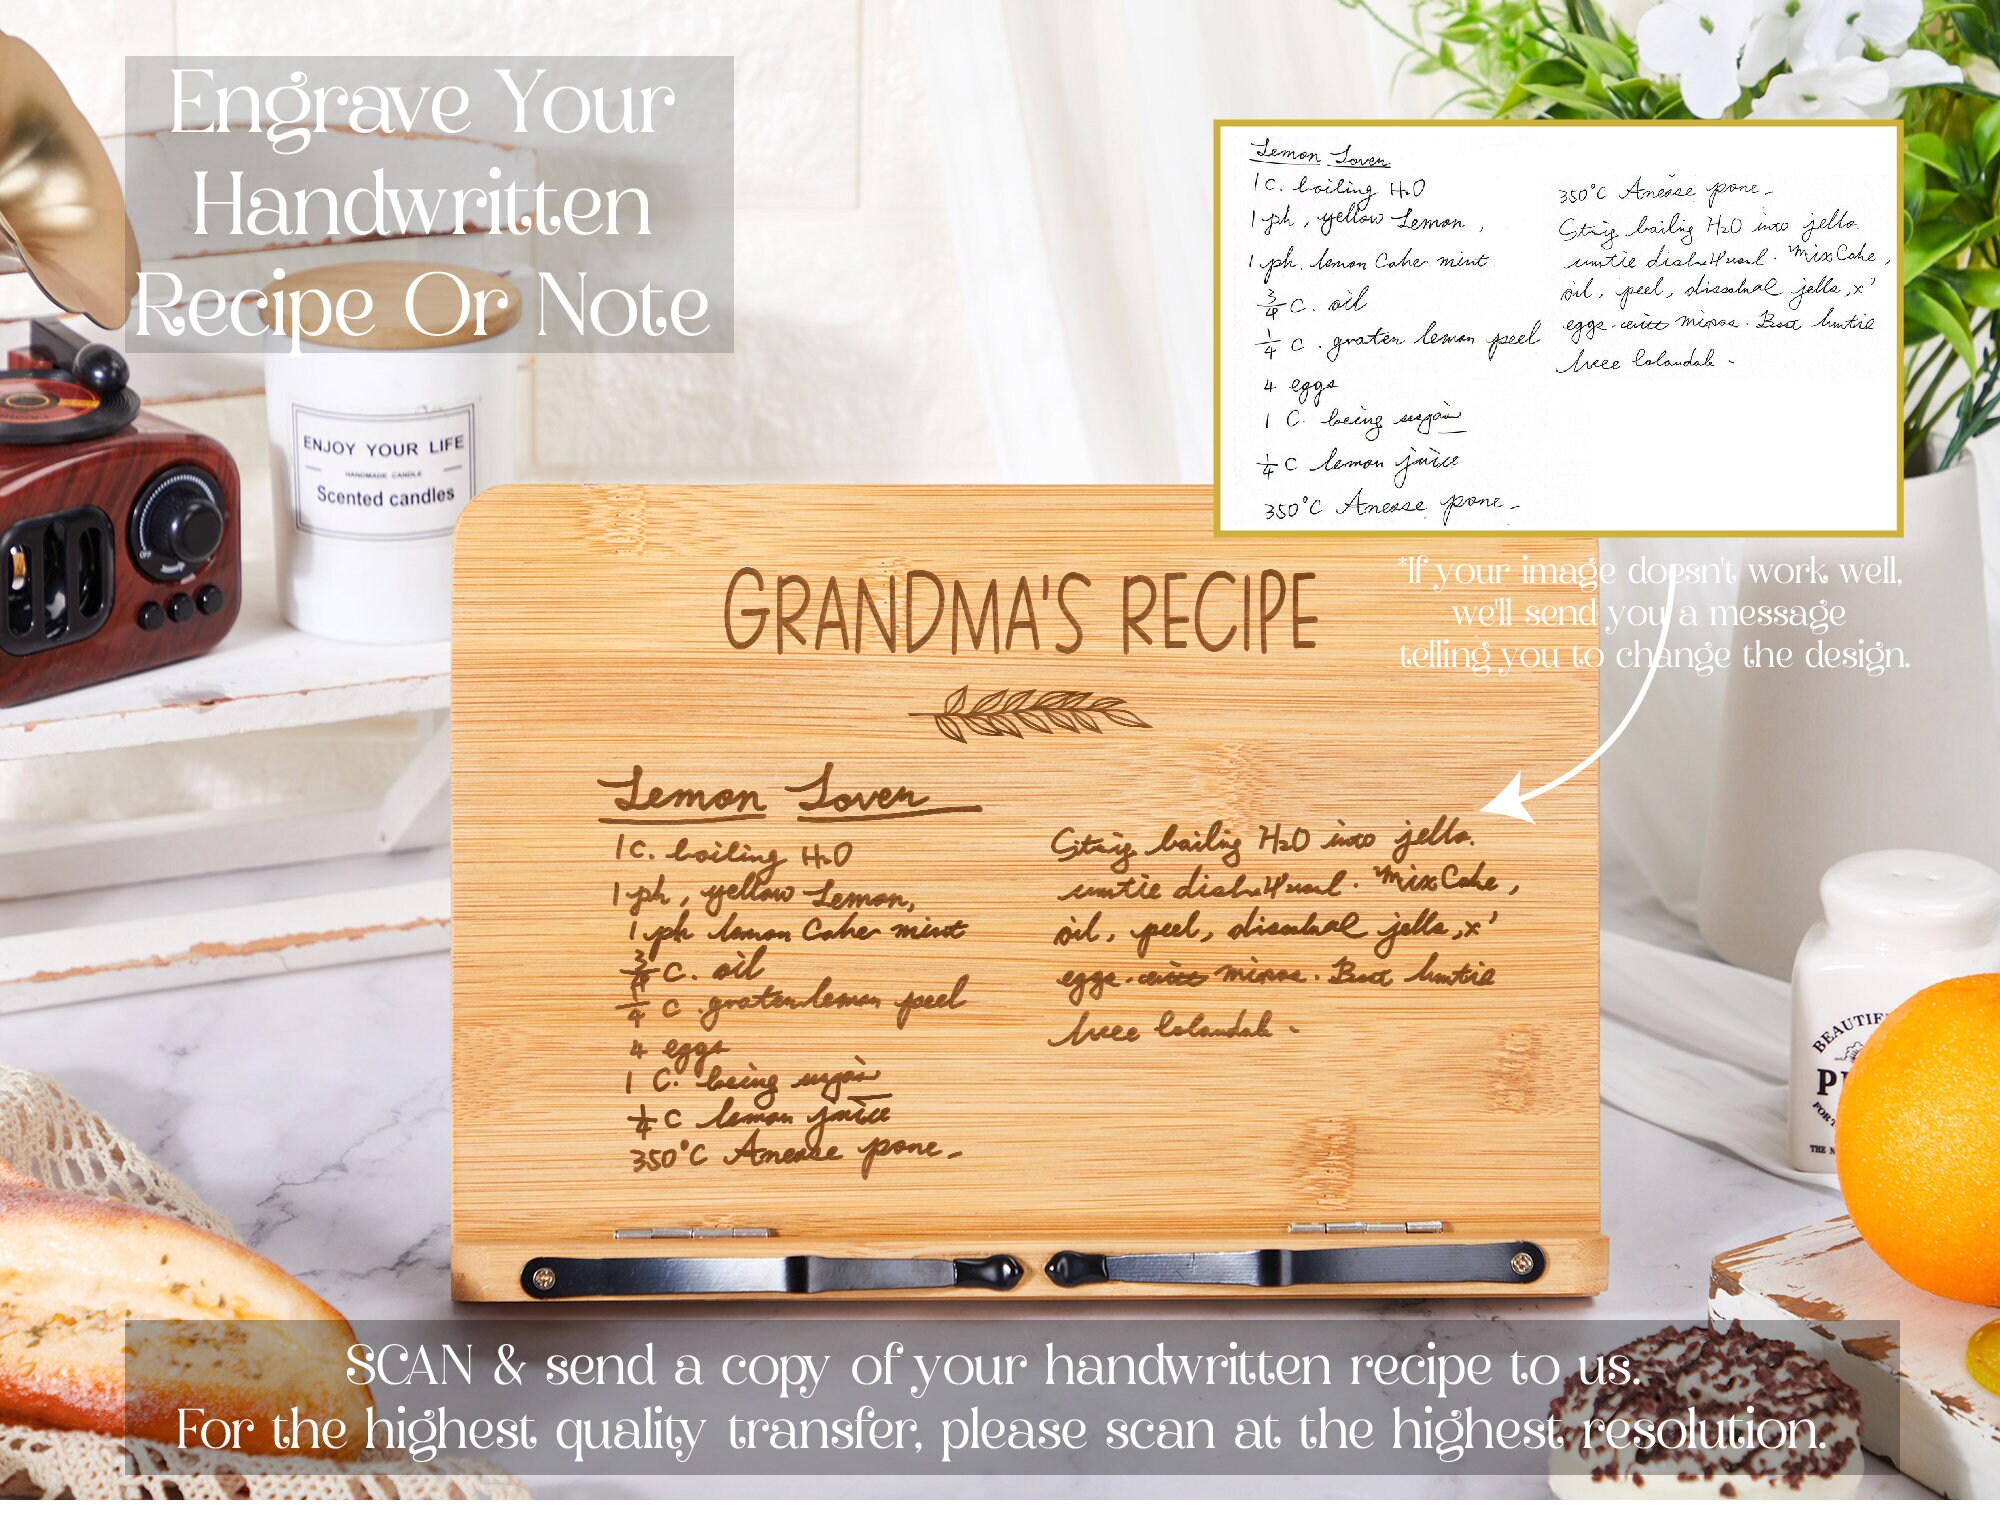 Engrave Your
Handwritten
Recipe Or Note
ENJOY YOUR LIFE
HANDMADE CANDLE
Scented candles
Lemon Lover
1 C. boiling H2O
1 ph, yellow Lemon,
1 ph. lemon Cake mint
3/4 C. oil
1/4 C. graten lemon peel
4 eggs
1 C. being sugar
1/4 C lemon juice
350°C Anease pone.
350°C Anease pone.
boiling H2O into jello.
Mix Cake,
oil, peel, jello, x'
eggs
*If your image doesn't work well,
we'll send you a message
telling you to change the design.
GRANDMA'S RECIPE
Lemon Lover
1 C. boiling H2O
1 ph, yellow Lemon,
1 ph lemon Cake mint
3/4 C. oil
1/4 C. graten lemon peel
4 eggs
1 C. being sugar
1/4 C lemon juice
350°C Anease pone.
boiling H2O into jello.
Mix Cake,
oil, peel, jello, x'
eggs
BEAUTIF
P
FOR
THE N
SCAN & send a copy of your handwritten recipe to us.
For the highest quality transfer, please scan at the highest resolution.